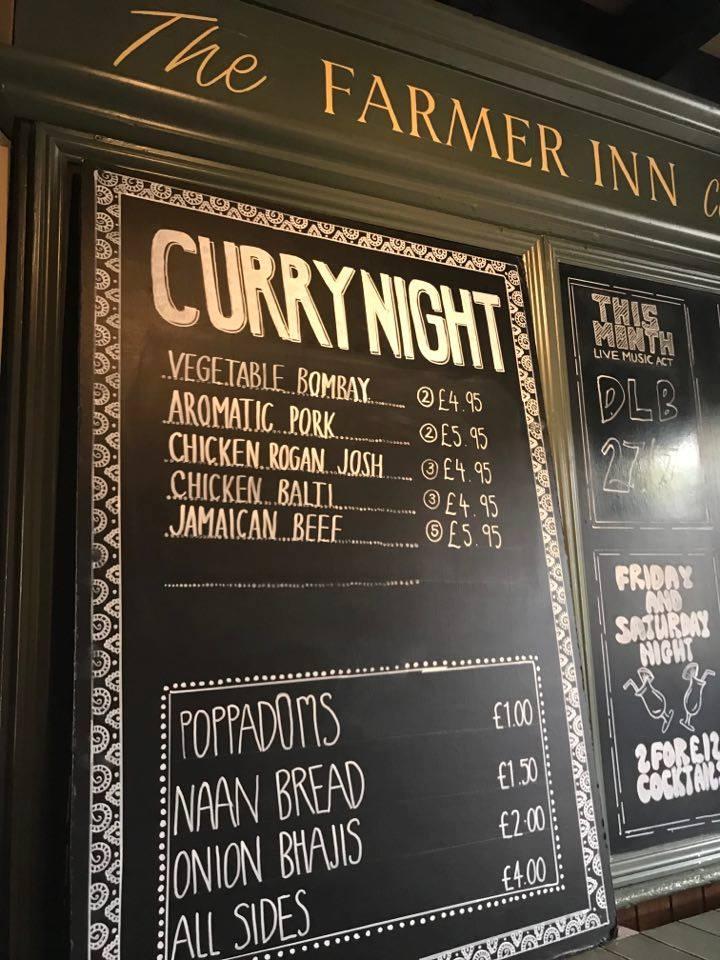 The FARMER INN
CURRY NIGHT
VEGETABLE BOMBAY ② £4.95
AROMATIC PORK ② £5.95
CHICKEN ROGAN JOSH ③ £4.95
CHICKEN BALTI ③ £4.95
JAMAICAN BEEF ⑤ £5.95
POPPADOMS £1.00
NAAN BREAD £1.50
ONION BHAJIS £2.00
ALL SIDES £4.00
THIS
MONTH
LIVE MUSIC ACT
DLB
FRIDAY
AND
SATURDAY
NIGHT
2 FOR £12
COCKTAILS